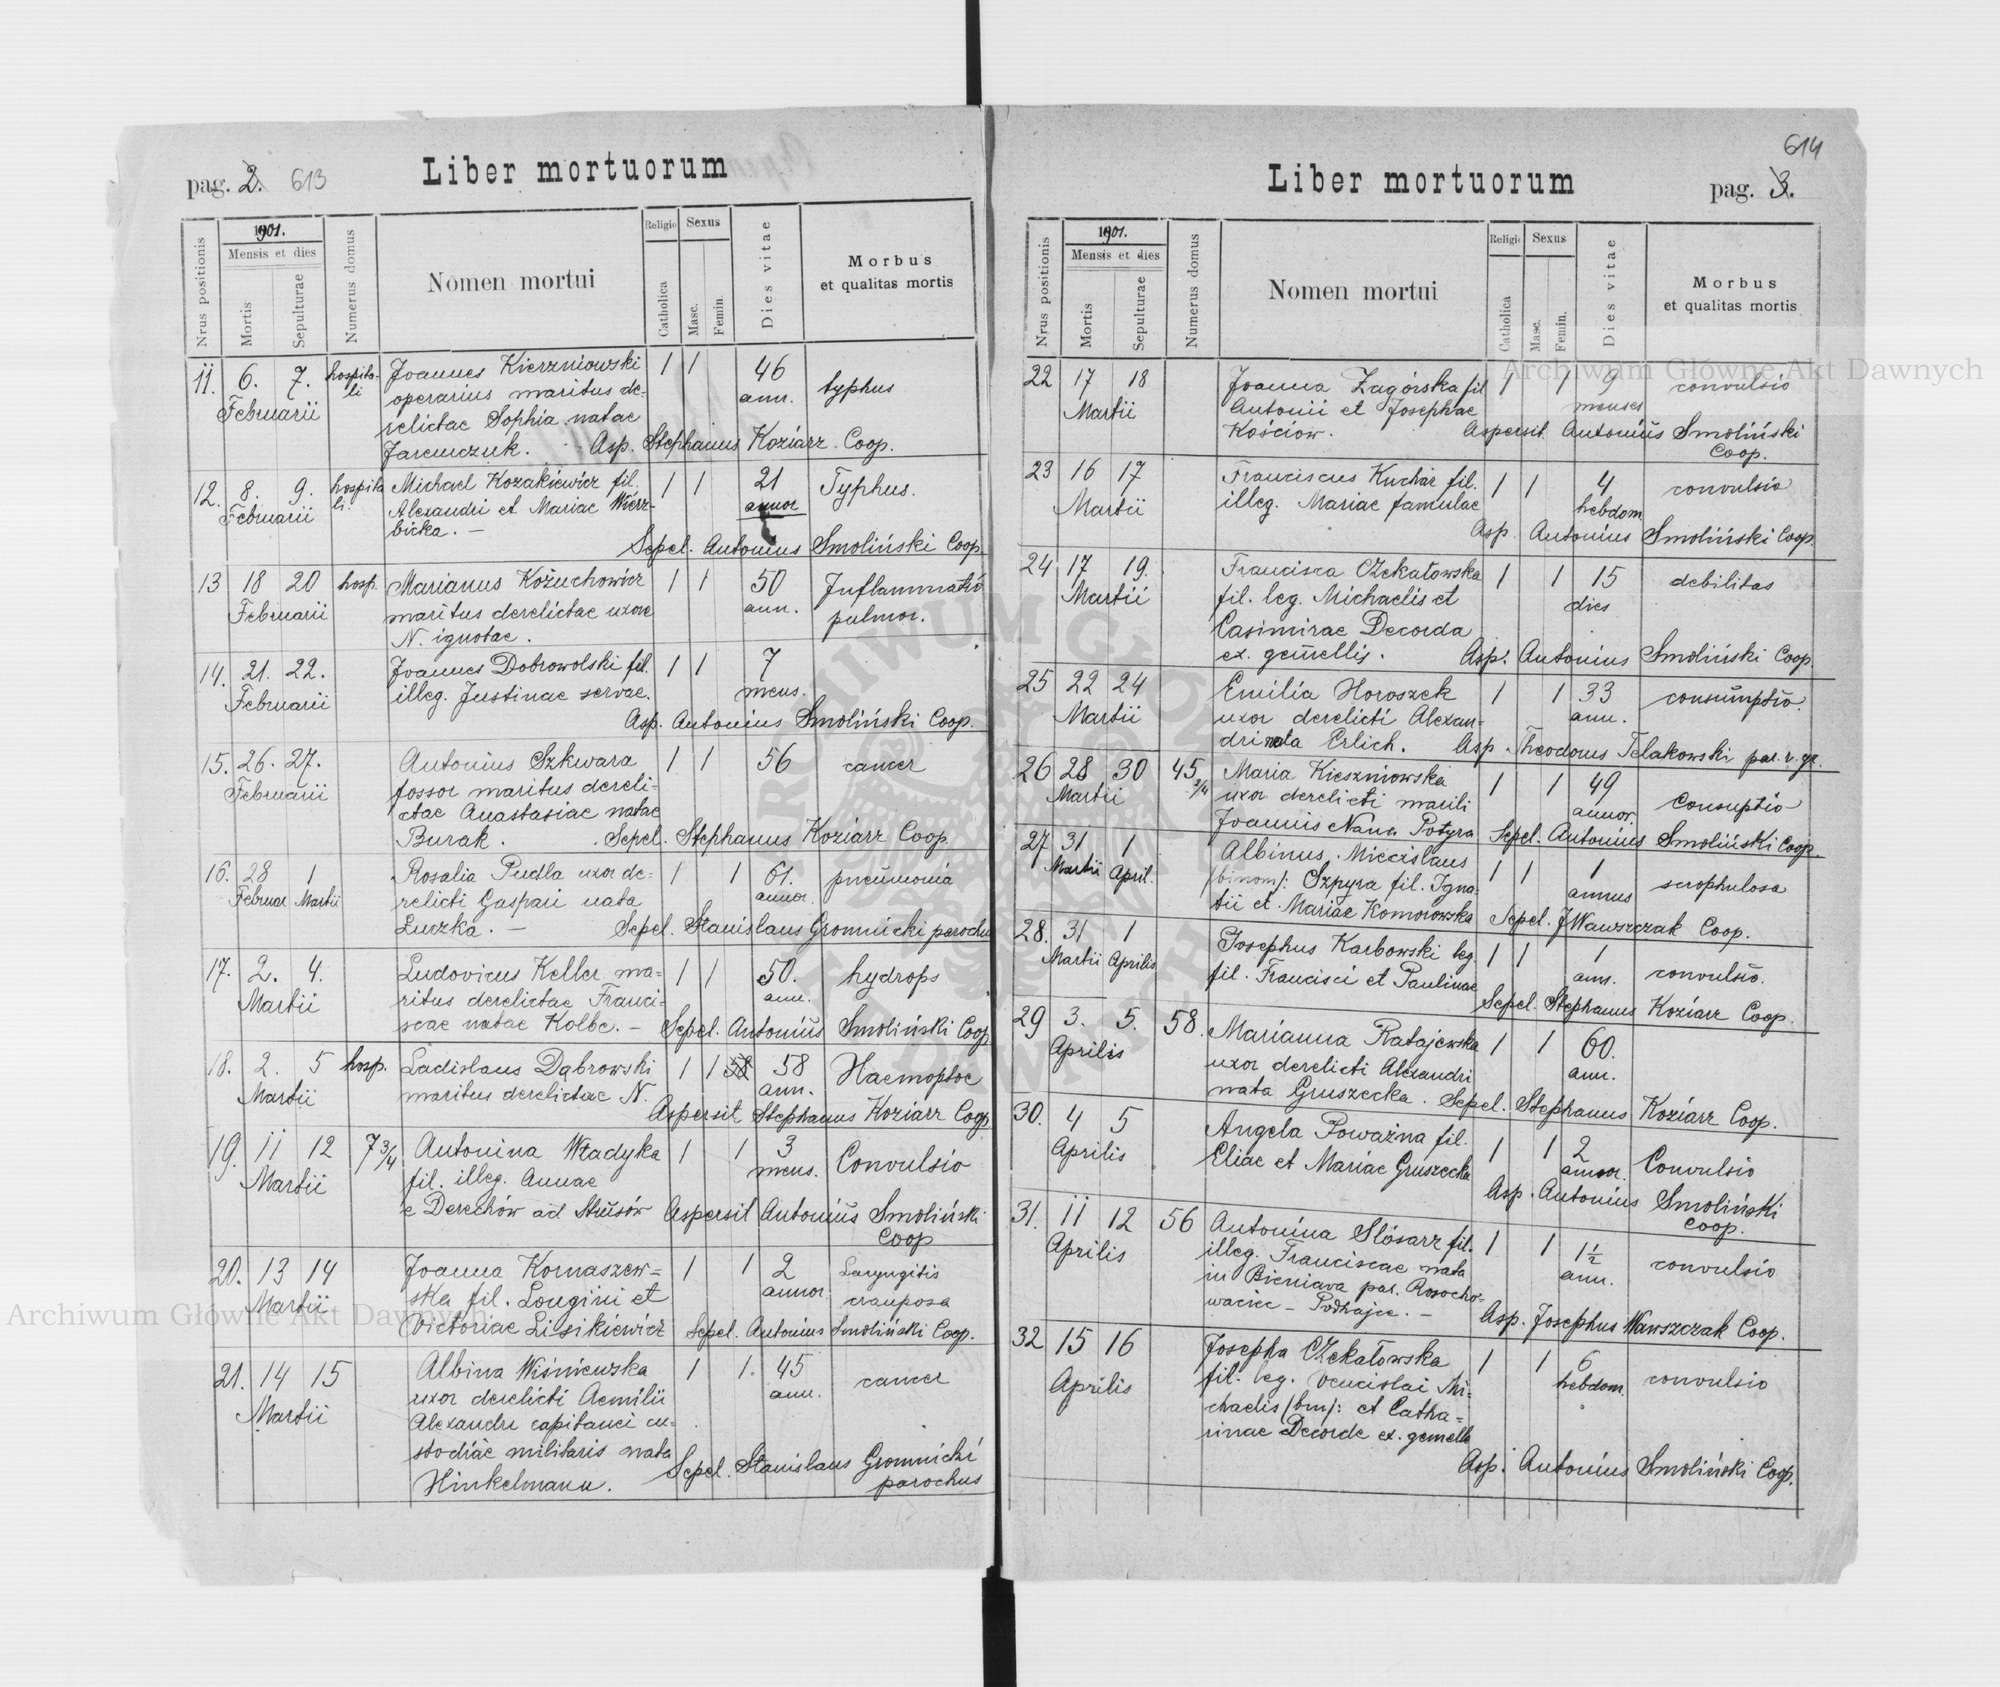 pag. 2. 613
Liber mortuorum
Nrus positionis
1901.
Mensis et dies
Mortis
Sepulturae
Numerus domus
Nomen mortui
Religio
Catholica
Sexus
Masc.
Femin.
Dies vitae
Morbus
et qualitas mortis
11. 6. 7. hospita- Joannes Kierzniowski 1 1 46
Februarii li operarius maritus de- ann. typhus
relictae Sophia natae
Jaremczuk. Asp. Stephanus Koziarz Coop.
12. 8. 9. hospita Michael Kozakiewicz fil. 1 1 21 Typhus.
Februarii li. Alexandri et Mariae Wierz- annor
bicka. —
Sepel. Antonius Smoliński Coop.
13 18 20 hosp. Marianus Kożuchowicz 1 1 50 Inflammatio
Februarii maritus derelictae uxore ann. pulmon.
N. ignotae.
14. 21. 22. Joannes Dobrowolski fil. 1 1 7
Februarii illeg. Justinae servae. mens.
Asp. Antonius Smoliński Coop.
15. 26. 27. Antonius Szkwara 1 1 56 cancer
Februarii fossor maritus dereli-
ctae Anastasiae natae
Burak. Sepel. Stephanus Koziarz Coop.
16. 28 1 Rosalia Pudla uxor de- 1 1 61. pneumonia
Februar Martii relicti Gaspari nata annor.
Luczka. — Sepel. Stanislaus Gromnicki parochus
17. 2. 4. Ludovicus Keller ma- 1 1 50. hydrops
Martii ritus derelictae Franci- ann.
scae natae Kolbe. — Sepel. Antonius Smoliński Coop
18. 2. 5 hosp. Ladislaus Dąbrowski 1 1 58 58 Haemoptoe
Martii maritus derelictae N. ann.
Aspersit Stephanus Koziarz Coop
19. 11 12 7 3/4 Antonina Władyka 1 1 3 Convulsio
Martii fil. illeg. Annae mens.
e Derechów ad Strusów Aspersit Antonius Smoliński
Coop
20. 13 14 Joanna Kornaszew- 1 1 2 Laryngitis
Martii ska fil. Longini et annor. crouposa
Victoriae Lisikiewicz Sepel. Antonius Smoliński Coop.
21. 14 15 Albina Wiśniewska 1 1. 45 cancer
Martii uxor derelicti Aemilii ann.
Alexandri capitanei cu-
stodiae militaris nata
Hinkelmann. Sepel. Stanislaus Gromnicki
parochus
614
Liber mortuorum
pag. 3.
Nrus positionis
1901.
Mensis et dies
Mortis
Sepulturae
Numerus domus
Nomen mortui
Religio
Catholica
Sexus
Masc.
Femin.
Dies vitae
Morbus
et qualitas mortis
22 17 18 Joanna Zagórska fil 1 1 9 convulsio
Martii Antonii et Josephae menses
Kościow. Aspersit Antonius Smoliński
Coop.
23 16 17 Franciscus Kuchar fil. 1 1 4 convulsio
Martii illeg. Mariae famulae hebdom
Asp. Antonius Smoliński Coop.
24 17 19. Francisca Czekałowska 1 1 15 debilitas
Martii fil. leg. Michaelis et dies
Casimirae Decorda
ex gemellis. Asp. Antonius Smoliński Coop.
25 22 24 Emilia Horoszek 1 1 33 consumptio.
Martii uxor derelicti Alexan- ann.
dri nata Erlich. Asp. Theodorus Telakowski par. r. gr.
26 28 30 45 2/4 Maria Kieszniowska 1 1 49
Martii uxor derelicti mariti annor. Consuptio
Joannis Nana Potyra Sepel. Antonius Smoliński Coop.
27 31 1 Albinus Miecislaus 1 1 1
Martii April. /binom/: Szpyra fil. Igna- annus scrophulosa
tii et Mariae Komorowska Sepel. J Wawszczak Coop.
28. 31 1 Josephus Karbowski leg. 1 1 1
Martii Aprilis fil. Francisci et Paulinae ann. convulsio.
Sepel. Stephanus Koziarz Coop.
29 3. 5. 58. Marianna Ratajewska 1 1 60.
Aprilis uxor derelicti Alexandri ann.
nata Gruszecka. Sepel. Stephanus Koziarz Coop.
30. 4 5 Angela Poważna fil. 1 1 2 Convulsio
Aprilis Eliae et Mariae Gruszecka annor.
Asp. Antonius Smoliński
Coop.
31. 11 12 56 Antonina Slósarz fil. 1 1 1 1/2 convulsio
Aprilis illeg. Franciscae nata ann.
in Bieniawa par. Rosocho-
waciec – Podhajce. — Asp. Josephus Wawszczak Coop.
32 15 16 Josepha Czekałowska 1 1 6 convulsio
Aprilis fil. leg. Venceslai Mi- hebdom.
chaelis /bin/: et Catha-
rinae Decorde ex. gemelle
Asp. Antonius Smoliński Coop.
Archiwum Główne Akt Dawnych
Archiwum Główne Akt Dawnych
ARCHIWUM GŁÓWNE AKT DAWNYCH